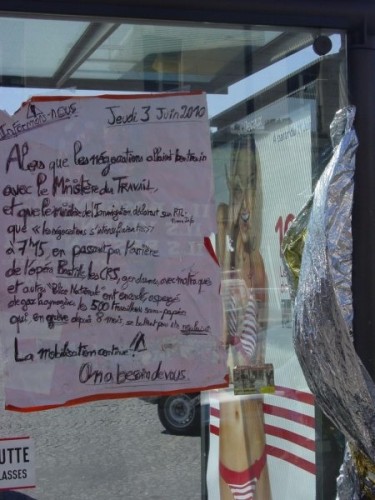 Informons-nous
Jeudi 3 Juin 2010
Alors que les négociations allaient bon train
avec le Ministère du TRAVAIL,
et que le ministre de l'Immigration déclarait sur RTL
que "les négociations
à 7H15 en passant par l'arrière
de l'opéra Bastille les CRS, gendarmes,
et autres ont encerclé, aspergé
de gaz lacrymogène les 500 travailleurs sans-papiers
qui en grève depuis 8 mois, se battent pour
La mobilisation continue!!
On a besoin de vous.
UTTE
LASSES